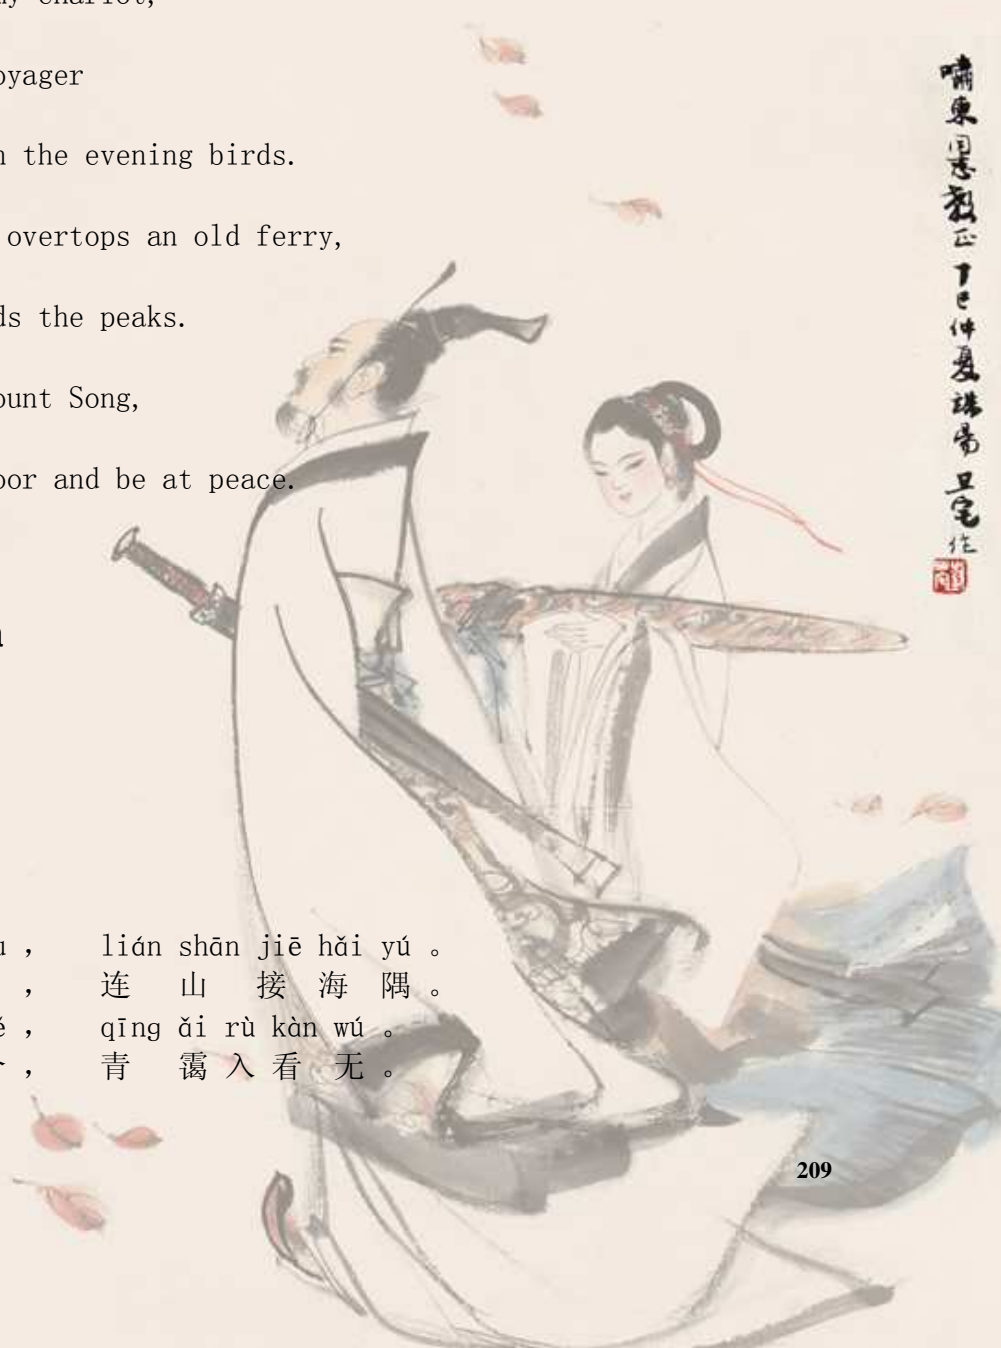 oyager
the evening birds.
overtops an old ferry,
ds the peaks.
ount Song,
oor and be at peace.
u ， lián shān jiē hǎi yú 。
， 连 山 接 海 隅 。
， qīng ǎi rù kàn wú 。
， 青 霭 入 看 无 。
209
嘯東 教正 丁巳仲夏 作